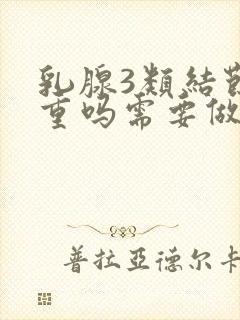 乳腺3類結
重吗需要做
普拉亞德尔卡